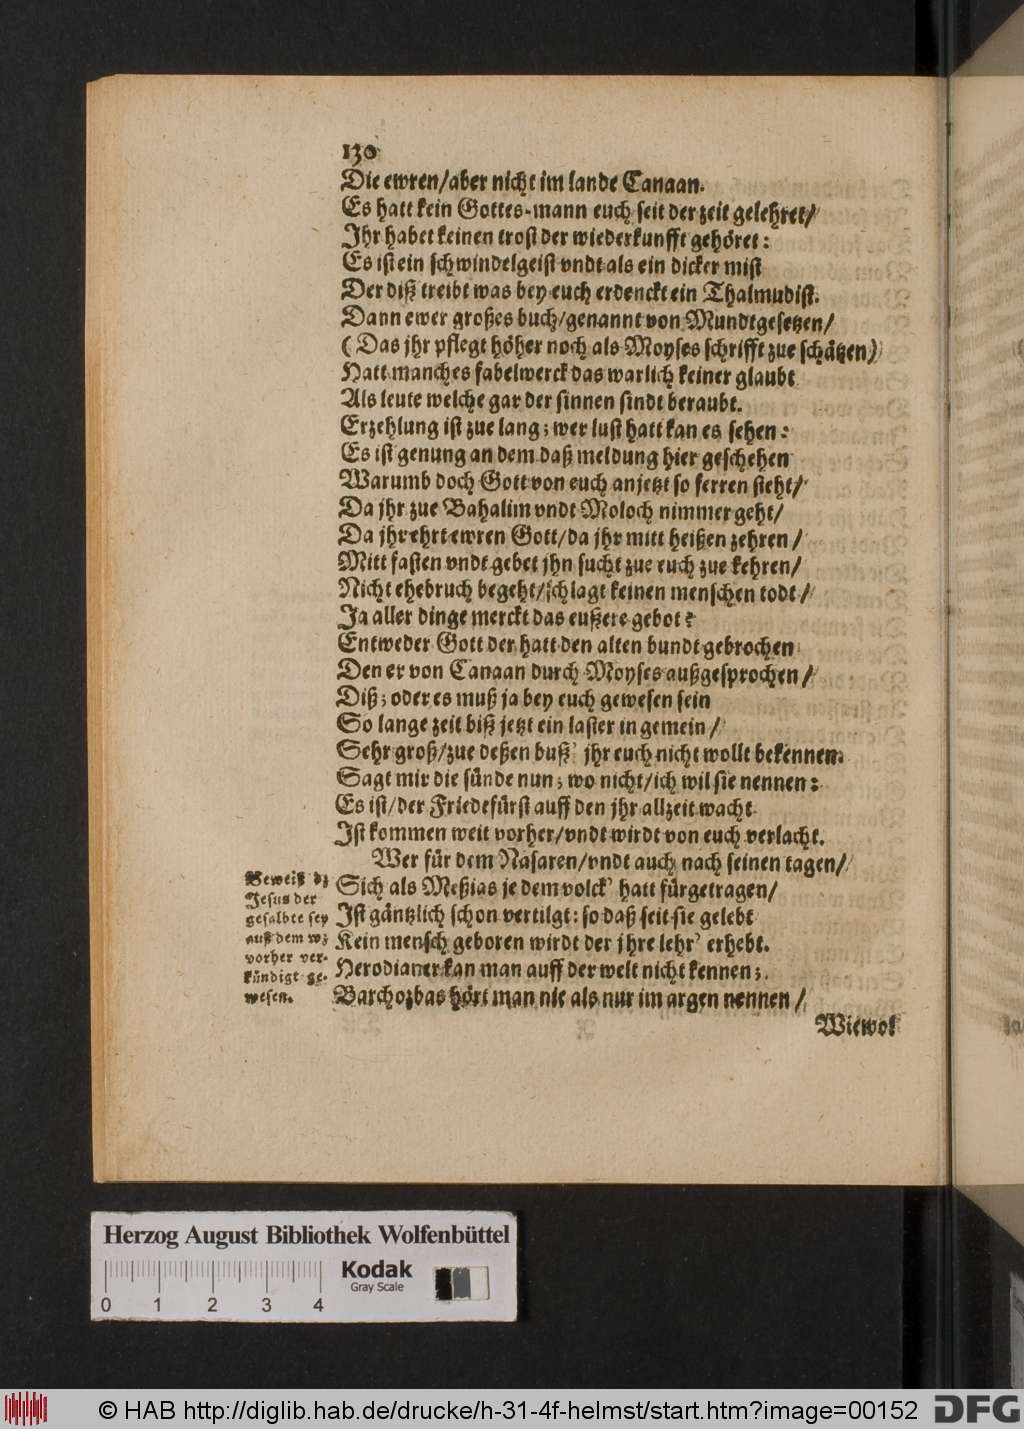 130
Die ewren/aber nicht im lande Canaan.
Es hatt kein Gottes-mann euch seit der zeit gelehret/
Ihr habet keinen trost der wiederkunfft gehöret:
Es ist ein schwindelgeist vndt als ein dicker mist
Der diß treibt was bey euch erdenckt ein Thalmudist.
Dann ewer großes buch/genannt von Mundtgesetzen/
(Das jhr pflegt höher noch als Moyses schrifft zue schätzen)
Hatt manches fabelwerck das warlich keiner glaubt
Als leute welche gar der sinnen sindt beraubt.
Erzehlung ist zue lang; wer lust hatt kan es sehen:
Es ist genung an dem daß meldung hier geschehen
Warumb doch Gott von euch anjetzt so ferren steht/
Da jhr zue Bahalim vndt Moloch nimmer geht/
Da jhr ehrt ewren Gott/da jhr mitt heißen zehren/
Mitt fasten vndt gebet jhn sucht zue euch zue kehren/
Nicht ehebruch begeht/schlagt keinen menschen todt/
Ja aller dinge merckt das eußere gebot?
Entweder Gott der hatt den alten bundt gebrochen
Den er von Canaan durch Moyses außgesprochen/
Diß; oder es muß ja bey euch gewesen sein
So lange zeit biß jetzt ein laster in gemein/
Sehr groß/zue deßen buß' jhr euch nicht wollt bekennen.
Sagt mir die sünde nun; wo nicht/ich wil sie nennen:
Es ist/der Friedefürst auff den jhr allzeit wacht
Ist kommen weit vorher/vndt wirdt von euch verlacht.
Wer für dem Nasaren/vndt auch nach seinen tagen/
Sich als Meßias je dem volck' hatt fürgetragen/
Ist gäntzlich schon vertilgt: so daß seit sie gelebt
Kein mensch geboren wirdt der jhre lehr' erhebt.
Herodianer kan man auff der welt nicht kennen;
Barchozbas hört man nie als nur im argen nennen/
Wiewol
Beweiß dz
Jesus der
gesalbte sey
auß dem wz
vorher ver-
kündigt ge-
wesen.
Herzog August Bibliothek Wolfenbüttel
Kodak
Gray Scale
0 1 2 3 4
© HAB http://diglib.hab.de/drucke/h-31-4f-helmst/start.htm?image=00152
DFG